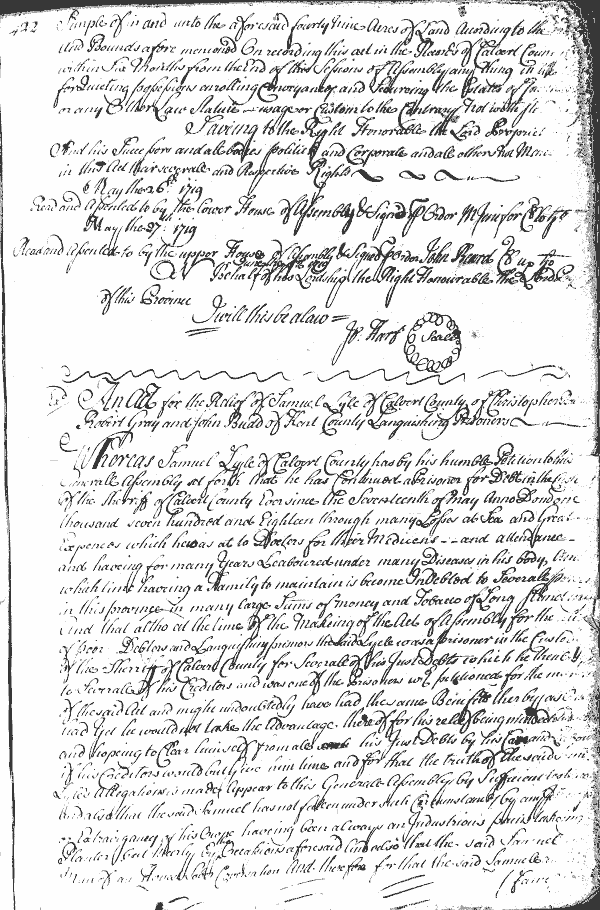 422
Simple of in and unto the aforesaid fourty Nine Acres of Land According to the
And Bounds afore mentoned On recording this act in the Record of Calvert Coun
within Six Months from the End of this Sessions of Assembly any thing in
for quieting possessions enrolling Conveyances and Securing the Estates of
or any Other Law Statute usage or Custom to the Contrary Notwith
Saving to the Right Honorable the Lord Propriet
And his Successors and all bodies politick and Corporate and all others Not Men
in this Act their severale and Respective Rights
May the 26th 1719
Read and assented to by the Lower House of Assembly & Signed p Ordor M
May the 27th 1719
Read and assented to by the upper House of Assembly & Signed p Ordor John Beard Cl up Ho
behalf of his Lordship the Right Honourable the Lord
of this Province
I will this be a law
Jo: Hart Seale
An Act for the Relief of Samuel Lyle of Calvert County, of Christopher
Robert Gray and John Budd of Kent County Languishing Prisoners
Whereas Samuel Lyle of Calvert County has by his humble Petition to this
Generale Assembly set forth that he has Continued a Prisoner for Debt in the
of the Sherriff of Calvert County Ever since the Seventeenth of May Anno Dom one
thousand seven hundred and Eighteen through many Losses at Sea and Great
Expences which he was at to Doctors for their Medicens and attendance
and haveing for many Years Leaboured under many Diseases in his body,
which time haveing a Family to maintain is become Indebted to Severale
in this province in many large Sums of money and Tobacco of Long
And that altho at the time of the Makeing of the Act of Assembly for the
of poor Debtors and Languishing prisoners the said Lyle was a prisoner in the Custo
of the Sherriff of Calvert County for Severale of his Just Debts which he then
to Severale of his Creditors and was one of the Prisoners wch petitioned for the
of the said Act and might undoubtedly have had the same Benefitt thereby as
Yet he would not take the advantage thereof for his releif being minded
and hopeing to Clear himself from all his Just Debts by his
if his Creditors would but give him time and for that the truth of the said
Lyles allegations is made Appear to this Generale Assembly by Sufficient
and also that the said Samuel has not fallen under such Circumstances by any
or Extravigancy of his Own haveing been always an Industrious pains takeing
Planter but meerly On Occasions aforesaid and also that the said Samuel
Man of an Honest Conversation And therefore for that the said Samuel
(Fame